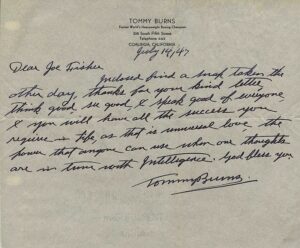 TOMMY BURNS
Former World's Heavyweight Boxing Champion
South Fifth Street
Telephone
COALINGA, CALIFORNIA
July 47
Dear Joe Fisher
Inclosed find a snap taken the
other day, thanks for your kind letter,
think good see good, & speak good of everyone
& you will have all the success you
require in life, as that is universal love, the
power that anyone can use when our thoughts
are in tune with Intelligence. God bless you
Tommy Burns.